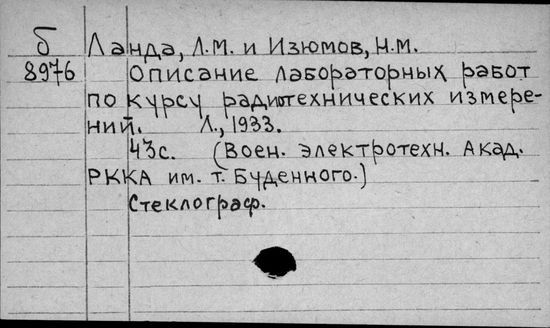 Б Ланда, Л.М. и Изюмов, Н.М.
8976 Описание лабораторных работ
по курсу радиотехнических измере-
ний. Л., 1933.
43с. (Воен. электротехн. Акад.
РККА им. т. Буденного.)
Стеклограф.